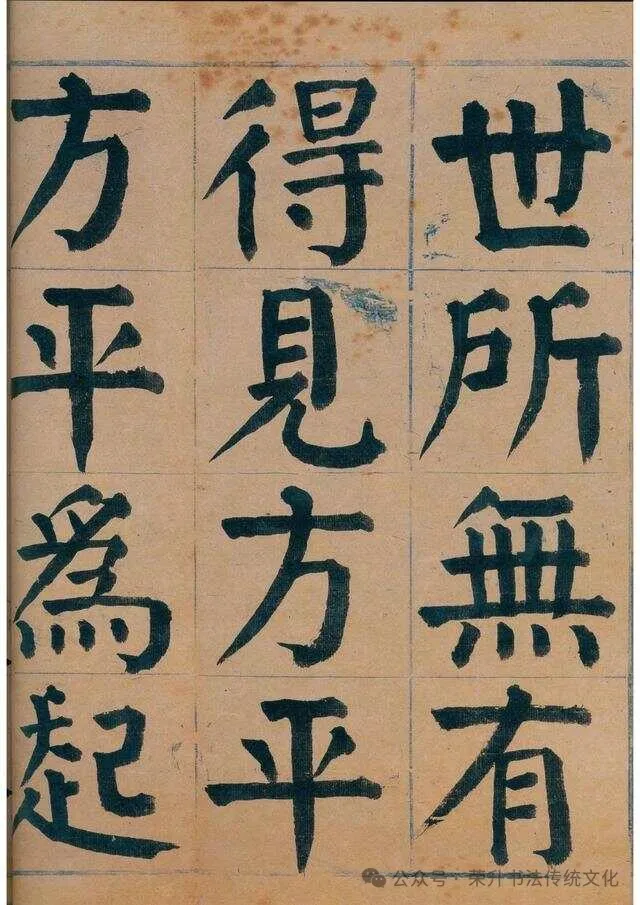 世所無有
得見方平
方平為起
公众号·荣升书法传统文化